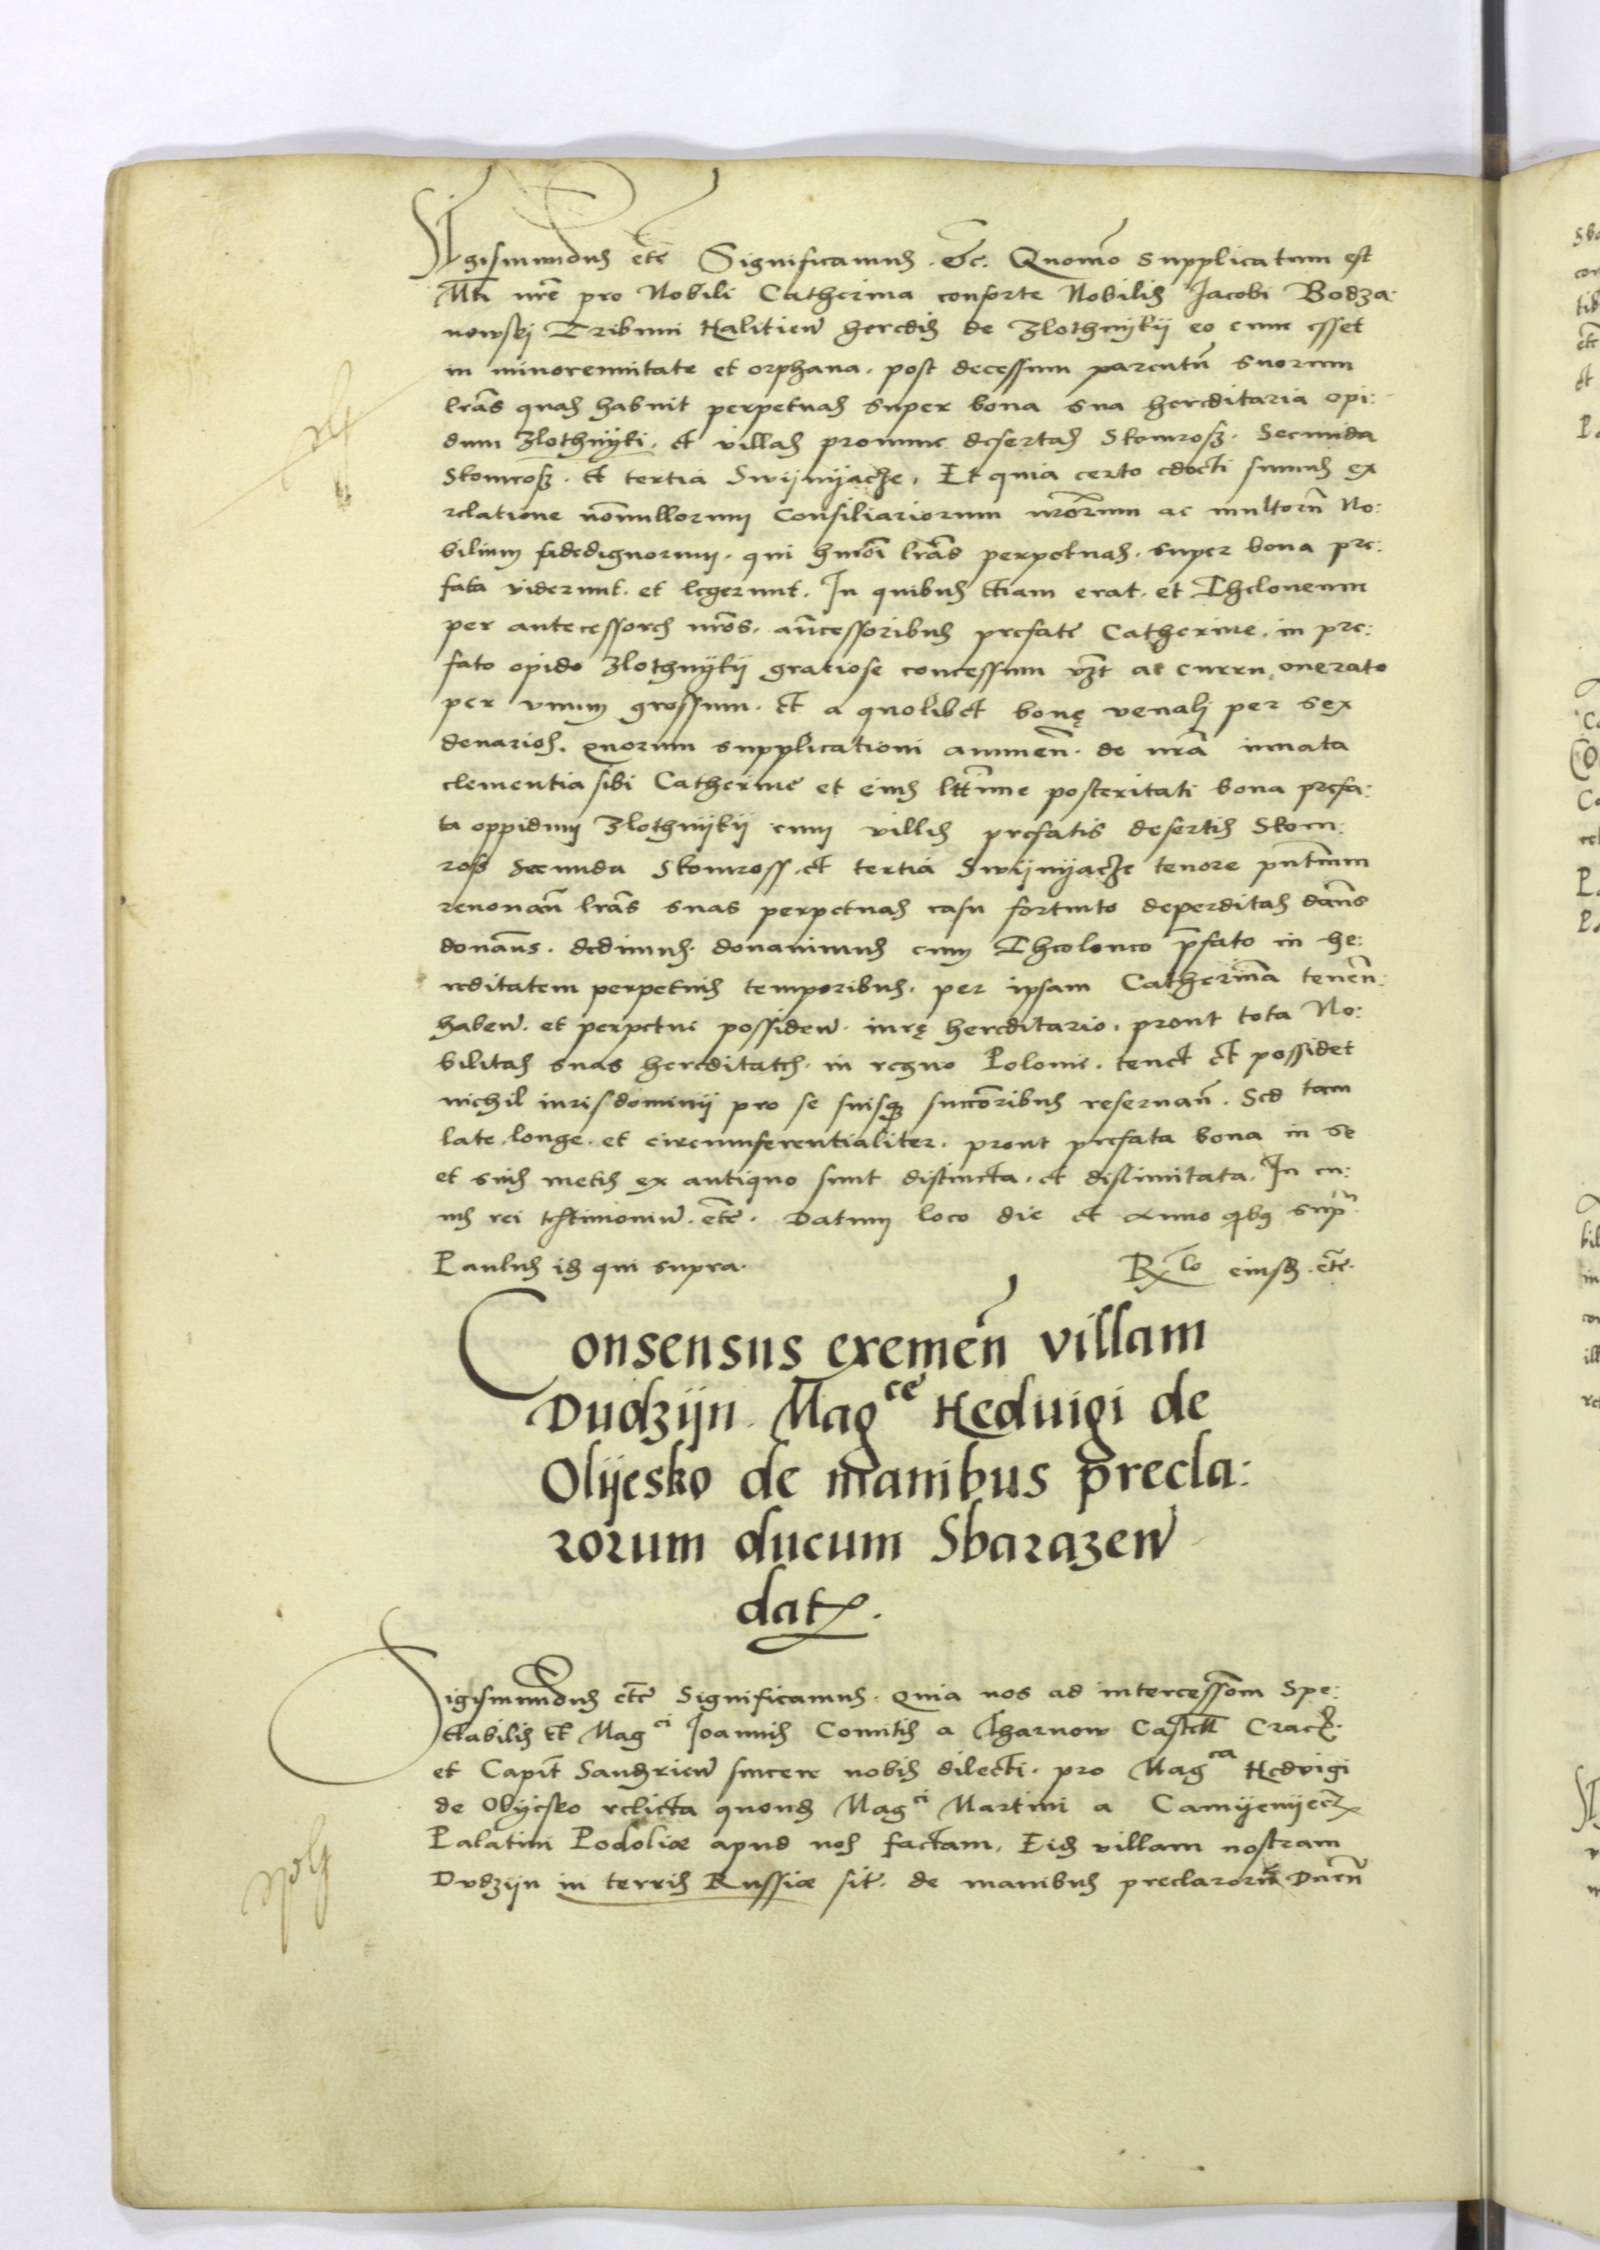 Sigismundus etc Significamus. etc. Quomo supplicatum est
Mti nre pro Nobili Catherina consorte Nobilis Jacobi Bodza:
nowskj Tribuni Halitien heredis de Zlothnykii eo cum esset
in minorennitate et orphana. post decessum parentu suorum
lras quas habuit perpetuas super bona sua hereditaria opi:
dum Zlothnyki. et villas pronunc desertas Skomrosz. Secunda
Skomrosz. et tertia Swijnyacze. Et quia certo edocti sumus ex
relatione nonnullorum Consiliariorum nrorum ac multoru No:
bilium fidedignorum. qui hmoi lras perpetuas. super bona pre:
fata viderunt. et legerunt. In quibus etiam erat. et Theloneum
per antecessores nros. ancessoribus prefate Catherine. in pre:
fato opido Zlothnykij gratiose concessum vzt at curru onerato
per vnum grossum. et a quolibet boue venalj per sex
denarios. Quorum supplicationi annuen. de nra innata
clementia sibi Catherine et eius lttime posteritati bona prefa:
ta oppidum Zlothnijkij cum villis prefatis desertis Skom:
ross Secunda Skomross. et tertia Swijnyacze tenore pntium
renouan lras suas perpetuas casu fortuito deperditas dans
donans. dedimus. donauimus cum Theoloneo pfato in he:
reditatem perpetuis temporibus. per ipsam Catherina tenen:
haben. et perpetue possiden. iure hereditario. prout tota No:
bilitas suas hereditates. in regno Polonie. tenet et possidet
nichil iuris dominij pro se suisq succoribus reseruan. Sed tam
late. longe. et circumferentialiter. prout prefata bona in se
et suis metis ex antiquo sunt distincta. et dislimitata. In cu:
ius rei testimoniu. etc. Datum loco die et Anno qbus supr
Paulus is qui supra. Rlo eiusd. etc.
Consensus exemen villam
Dudzijn. Magce Heduigi de
Olijesko de manibus precla:
rorum ducum Sbarazen
dat.
Sigismundus etc Significamus. Quia nos ad intercessom Spe:
ctabilis et Magci Joannis Comitis a Tharnow Castell Crac.
et Capit Sandrien sincere nobis dilecti. pro Magca Hedvigi
de Olijesko relicta quond Magci Martini a Camyenyecz
Palatini Podoliae apud nos factam. Eid villam nostram
Dvdzijn in terris Russiae sit. de manibus preclaroru Ducu